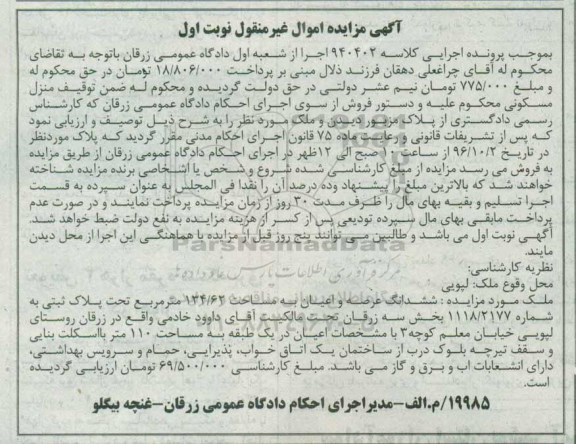 آگهی مزایده اموال غیرمنقول نوبت اول
بموجب پرونده اجرایی کلاسه ۹۴۰۴۰۲ اجرا از شعبه اول دادگاه عمومی زرقان باتوجه به تقاضای
محکوم له آقای چراغعلی دهقان فرزند ذلال مبنی بر پرداخت ۱۸/۸۰۶/۰۰۰ تومان در حق محکوم له
و مبلغ ۷۷۵/۰۰۰ تومان نیم عشر دولتی در حق دولت گردیده و محکوم له ضمن توقیف منزل
مسکونی محکوم علیه و دستور فروش از سوی اجرای احکام دادگاه عمومی زرقان که کارشناس
رسمی دادگستری از پلاک مزبور دیدن و ملک مورد نظر را به شرح ذیل توصیف و ارزیابی نمود
که پس از تشریفات قانونی و رعایت ماده ۷۵ قانون اجرای احکام مدنی مقرر گردید که پلاک موردنظر
در تاریخ ۹۶/۱۰/۲ از ساعت ۱۰ صبح الی ۱۲ظهر در اجرای احکام دادگاه عمومی زرقان از طریق مزایده
به فروش می رسد مزایده از مبلغ کارشناسی شده شروع و شخص یا اشخاصی برنده مزایده شناخته
خواهند شد که بالاترین مبلغ را پیشنهاد وده درصد آن را نقدا فی المجلس به عنوان سپرده به قسمت
اجرا تسلیم و بقیه بهای مال را ظرف مدت ۳۰ روز از زمان مزایده پرداخت نمایند و در صورت عدم
پرداخت مابقی بهای مال سپرده تودیعی پس از کسر از هزینه مزایده به نفع دولت ضبط خواهد شد.
آگهی نوبت اول می باشد و طالبین می توانند پنج روز قبل از مزایده با هماهنگی این اجرا از محل دیدن
مایند.
نظریه کارشناسی:
محل وقوع ملک: لپویی
ملک مورد مزایده : ششدانگ عرصه و اعیان به مساحت ۱۳۴/۶۲ مترمربع تحت پلاک ثبتی به
شماره ۱۱۱۸/۲۱۷۷ بخش سه زرقان تحت مالکیت آقای داوود خادمی واقع در زرقان روستای
لپویی خیابان معلم کوچه۳ با مشخصات اعیان در یک طبقه به مساحت ۱۱۰ متر بااسکلت بنایی
و سقف تیرچه بلوک درب از ساختمان یک اتاق خواب، پذیرایی، حمام و سرویس بهداشتی،
دارای انشعابات اب و برق و گاز می باشد. مبلغ کارشناسی ۶۹/۵۰۰/۰۰۰ تومان ارزیابی گردیده
است.
۱۹۹۸۵/م.الف-مدیراجرای احکام دادگاه عمومی زرقان-غنچه بیگلو
ParsNamadData